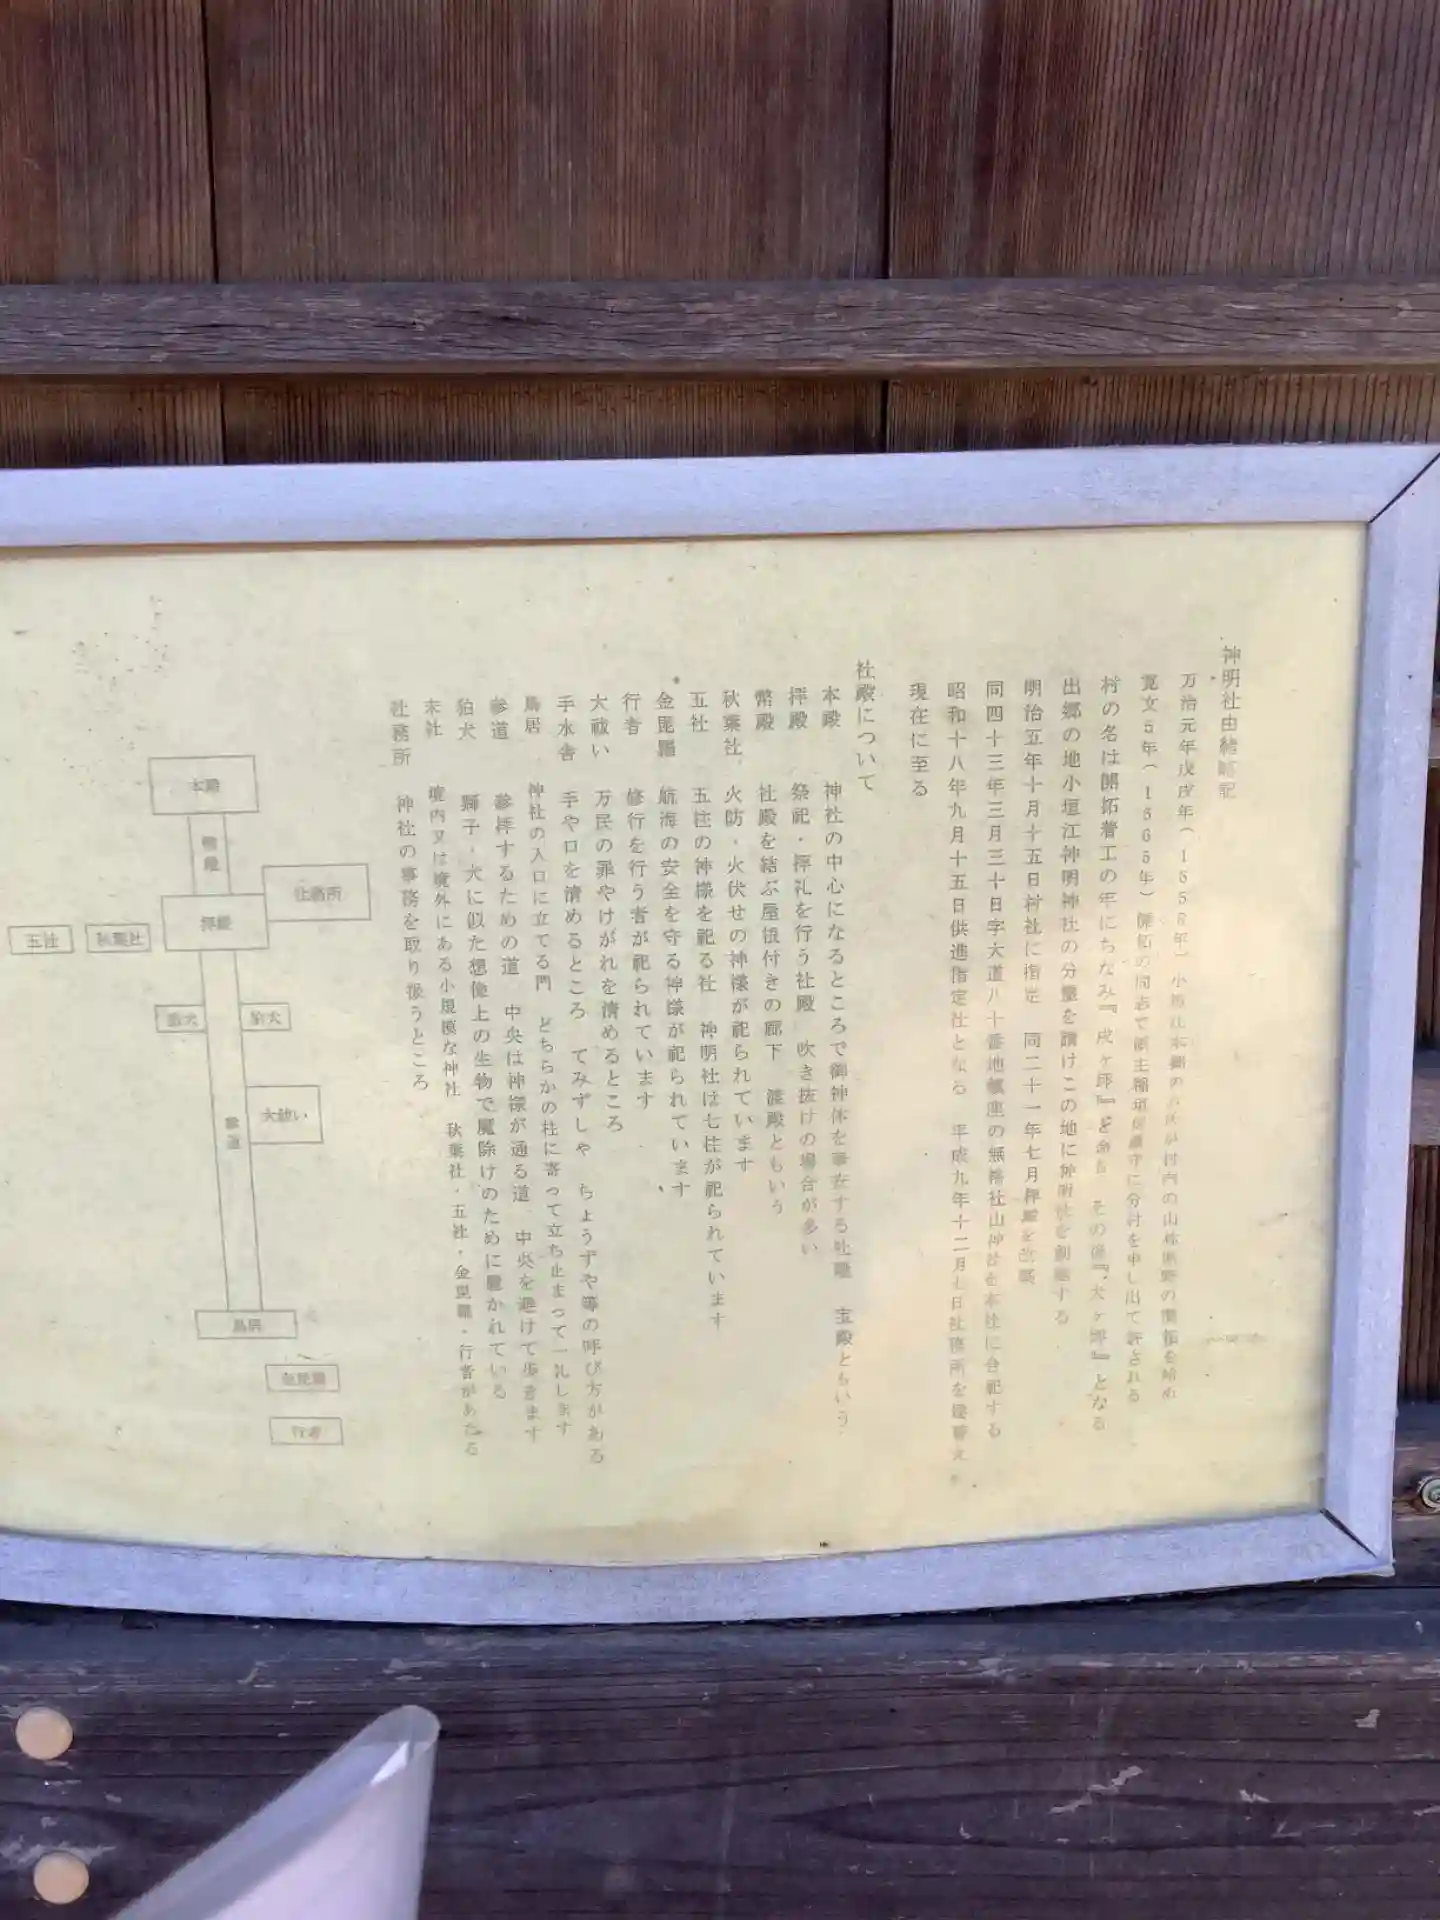 神明社由緒略記
万治元年戊戌年(1658年)小垣江本郷の 村内の山林原野の開拓を始め
寛文5年(1665年) の同志で領主稲垣 に分村を申し出て許される
村の名は開拓着工の年にちなみ『戌ヶ郷』と その後『犬ヶ郷』となる
出郷の地小垣江神明神社の分霊を請けこの地に神明社を創建する
明治五年十月十五日村社に指定 同二十一年七月拝殿を改築
同四十三年三月三十日字大道八十番地鎮座の無格社山神社を本社に合祀する
昭和十八年九月十五日供進指定社となる 平成九年十二月七日社務所を建替え
現在に至る
社殿について
本殿 神社の中心になるところで御神体を奉安する社殿 宝殿ともいう
拝殿 祭祀・拝礼を行う社殿 吹き抜けの場合が多い
幣殿 社殿を結ぶ屋根付きの廊下 渡殿ともいう
秋葉社 火防・火伏せの神様が祀られています
五社 五柱の神様を祀る社 神明社は七柱が祀られています
金毘羅 航海の安全を守る神様が祀られています
行者 修行を行う者が祀られています
大祓い 万民の罪やけがれを清めるところ
手水舎 手や口を清めるところ てみずしゃ ちょうずや等の呼び方がある
鳥居 神社の入口に立てる門 どちらかの柱に寄って立ち止まって一礼します
参道 参拝するための道 中央は神様が通る道 中央を避けて歩きます
狛犬 獅子・犬に似た想像上の生物で魔除けのために置かれている
末社 境内又は境外にある小規模な神社 秋葉社・五社・金毘羅・行者があたる
社務所 神社の事務を取り扱うところ
本殿
幣殿
社務所
拝殿
秋葉社
五社
狛犬
狛犬
大祓い
参道
鳥居
金毘羅
行者